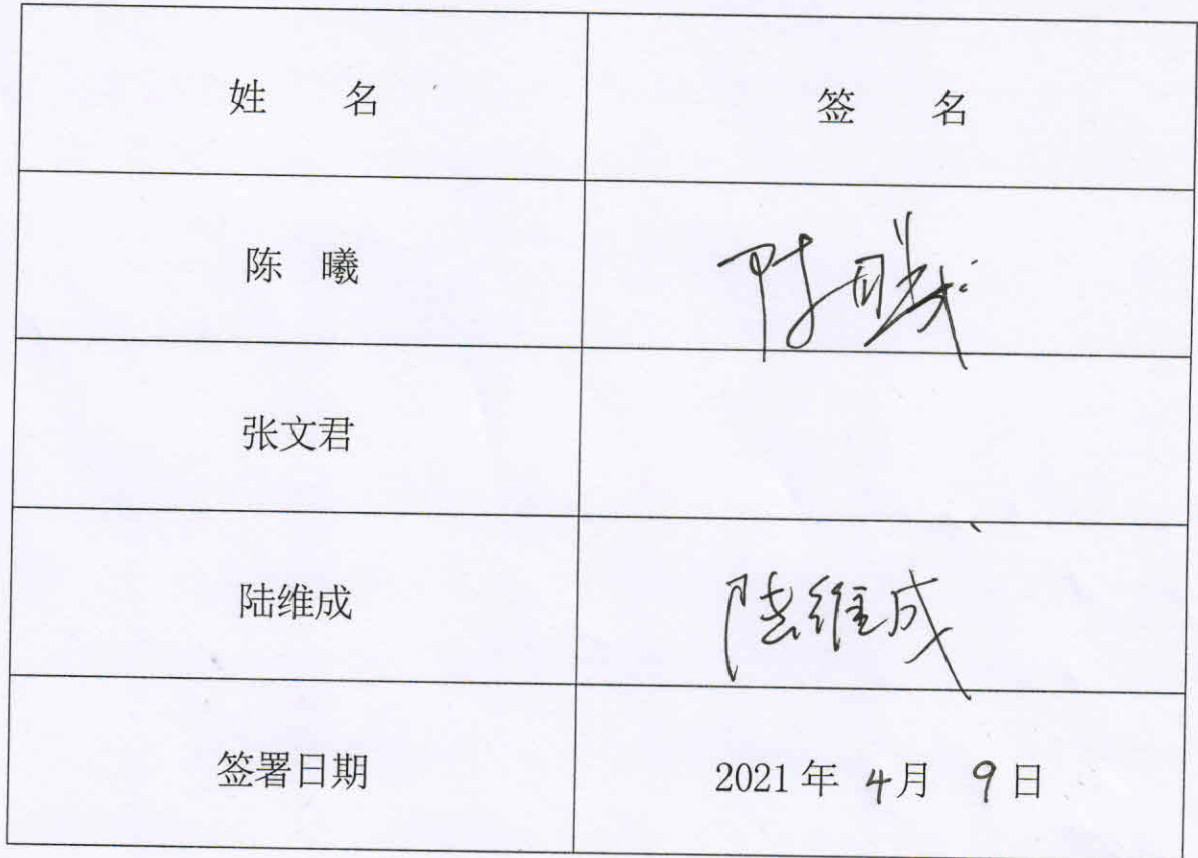 姓 名 签 名
陈 曦 陈曦
张文君
陆维成 陆维成
签署日期 2021年 4月 9日